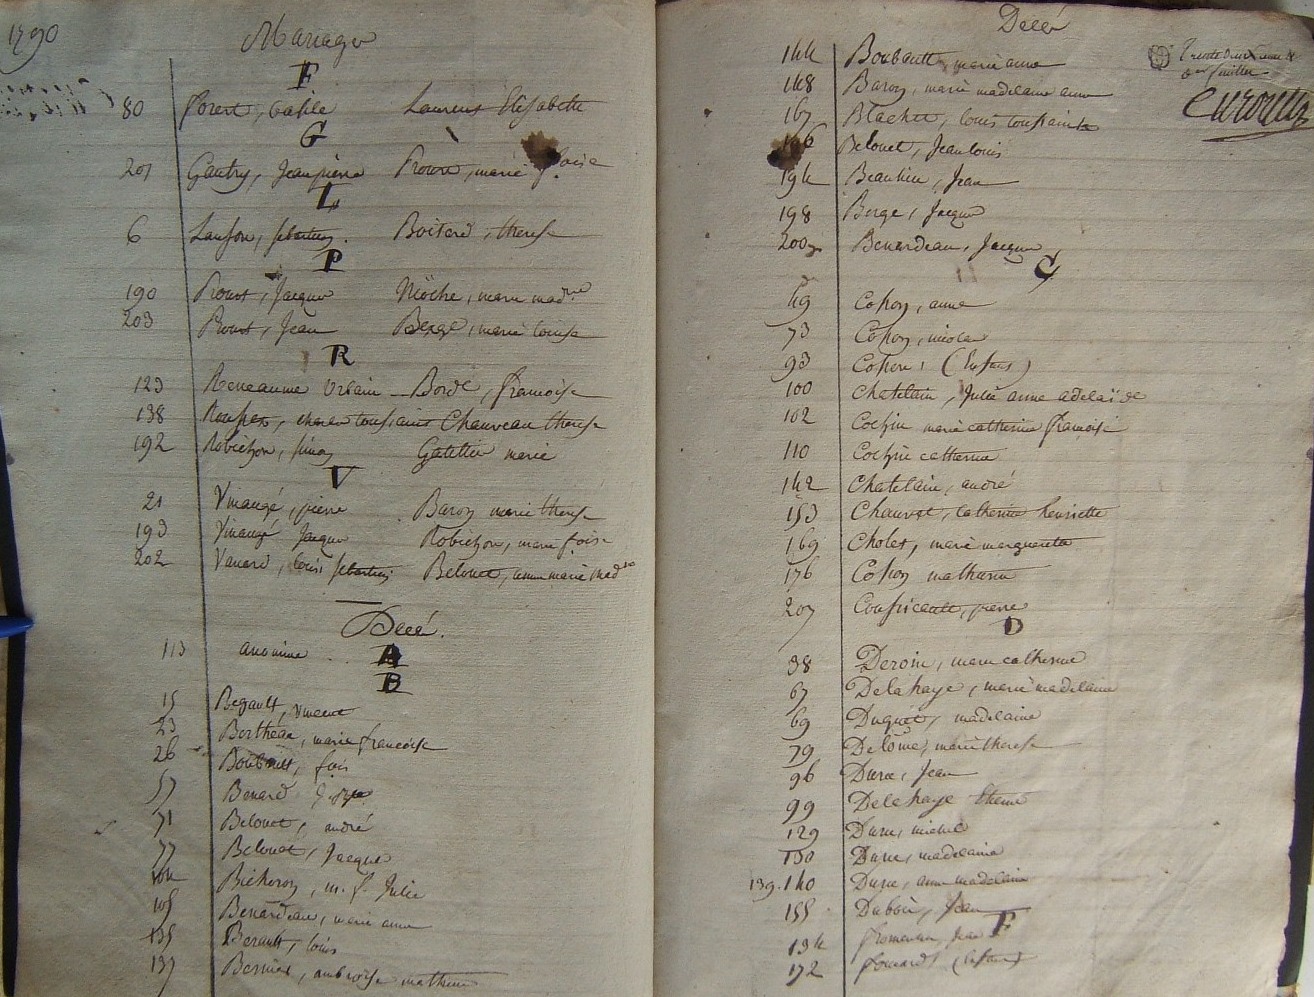 1790
Mariages
F
80 forest, basile Laurens Elisabeth
G
201 Gautry, Jean pierre Prouve, marie fçoise
L
6 Lanson, sebastien. Boitard, therese
P
190 Proust, Jacque Mèche, marie mad.ne
203 Proust, Jean Berge, marie louise
R
123 Reneaume Urbain Borde, francoise
138 toussaint Chauveau therese
192 Robichon, simon Gatellier marie
V
21 Vinaugé, pierre Baron marie therese
193 Vinaugé Jacque Robichon, marie fçoise
202 Vanard, louis sebastien Belouet, anne marie mad.ne
Décé.
A
113 anonime
B
15 Begault, vincent
23 Bertheau, marie francoise
26 Boubault, fçois
57 Benard
71 Belouet, andré
77 Belouet, Jacque
104 m. f. Julie
105 Benardeau, marie anne
135 Berault, louis
137 Bernier, ambroise mathurin
Décé
Trente deuxieme &
der feuillet
144 Boubault, marie anne
148 Baron, marie madelaine anne
167 Blachet, louis toussaint
186 Belouet, Jean louis
194 Beaulieu, Jean
198 Berge, Jacque
200 Benardeau, Jacque
C
49 Cohon, anne
73 Cohon, nicolas
93 Cohon, (Enfans)
100 Chatelain, Julie anne adelaïde
102 Cochin marie catherine francoise
110 Cochin catherine
142 Chatelain, andré
153 Chauvet, catherine henriette
169 Cholet, marie marguerite
176 Cohon mathurin
207 pierre
D
38 Deroin, marie catherine
67 Delahaye, marie madelaine
69 Duguet, madelaine
79 Delôme, marie therese
96 Dure, Jean
99 Delehaye etienne
129 Dure, michel
130 Dure, madelaine
139. 140 Dure, anne madelaine
155 Dubois, Jean
F
134 fromentin, Jean
172 fouard, (Enfant)